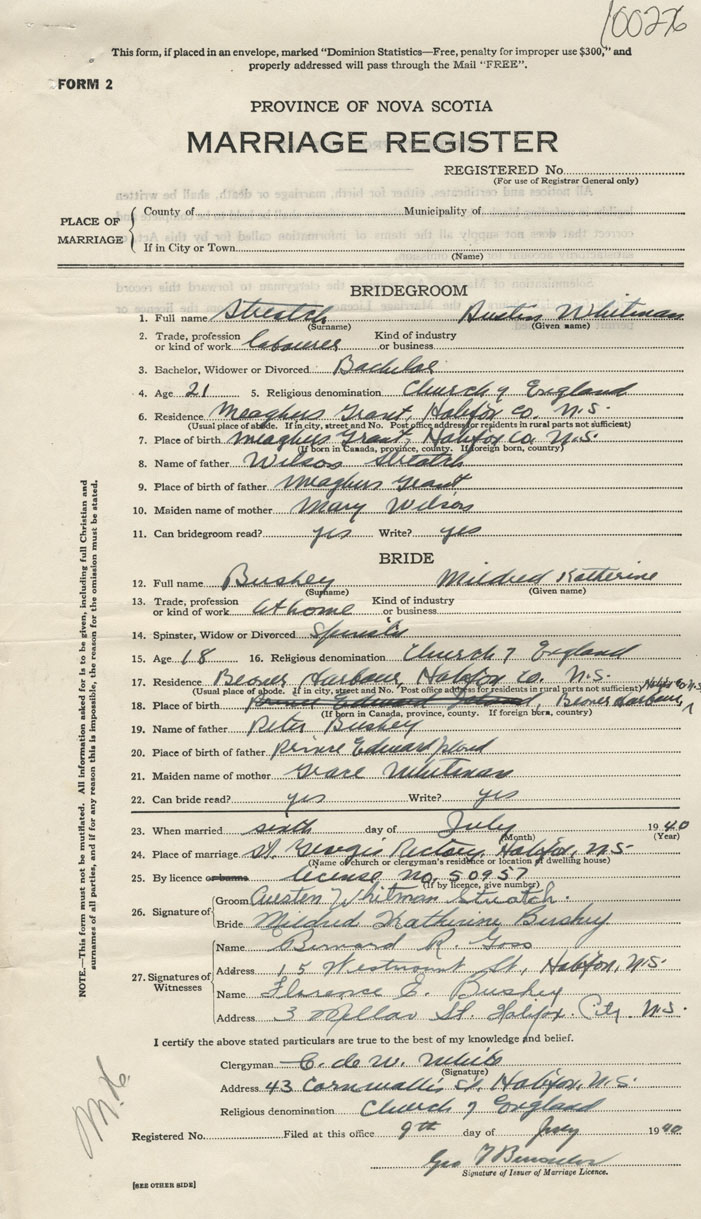 100276
This form, if placed in an envelope, marked "Dominion Statistics—Free, penalty for improper use $300," and
properly addressed will pass through the Mail "FREE".
FORM 2
PROVINCE OF NOVA SCOTIA
MARRIAGE REGISTER
REGISTERED No.
(For use of Registrar General only)
PLACE OF MARRIAGE
County of Municipality of
If in City or Town
(Name)
BRIDEGROOM
1. Full name Stretch Austin Whitman
(Surname) (Given name)
2. Trade, profession or kind of work labourer Kind of industry or business
3. Bachelor, Widower or Divorced Bachelor
4. Age 21 5. Religious denomination Church of England
6. Residence Meaghers Grant, Halifax Co. N.S.
(Usual place of abode. If in city, street and No. Post office address for residents in rural parts not sufficient)
7. Place of birth Meaghers Grant, Halifax Co. N.S.
(If born in Canada, province, county. If foreign born, country)
8. Name of father Wilson Stretch
9. Place of birth of father Meaghers Grant
10. Maiden name of mother Mary Wilson
11. Can bridegroom read? yes Write? yes
BRIDE
12. Full name Bushey Mildred Katherine
(Surname) (Given name)
13. Trade, profession or kind of work at home Kind of industry or business
14. Spinster, Widow or Divorced Spinster
15. Age 18 16. Religious denomination Church of England
17. Residence Beaver Harbour, Halifax Co. N.S.
(Usual place of abode. If in city, street and No. Post office address for residents in rural parts not sufficient) Halifax Co. N.S.
18. Place of birth Prince Edward Island, Beaver Harbour,
(If born in Canada, province, county. If foreign born, country)
19. Name of father Peter Bushey
20. Place of birth of father Prince Edward Island
21. Maiden name of mother Grace Whitman
22. Can bride read? yes Write? yes
23. When married sixth day of July 1940
(Month) (Year)
24. Place of marriage St. George's Rectory, Halifax, N.S.
(Name of church or clergyman's residence or location of dwelling house)
25. By licence or banns license no. 50957
(If by licence, give number)
26. Signature of
Groom Austen Whitman Stretch.
Bride Mildred Katherine Bushey
27. Signatures of Witnesses
Name Bernard R. Goss
Address 15 Westmount St, Halifax, N.S.
Name Florence E. Bushey
Address 3 Millar St. Halifax City N.S.
I certify the above stated particulars are true to the best of my knowledge and belief.
Clergyman C. de W. White
(Signature)
Address 43 Cornwallis St. Halifax, N.S.
Religious denomination Church of England
Registered No. Filed at this office 9th day of July 1940
Geo
Signature of Issuer of Marriage Licence.
[SEE OTHER SIDE]
NOTE.—This form must not be mutilated. All information asked for is to be given, including full Christian and
surnames of all parties, and if for any reason this is impossible, the reason for the omission must be stated.